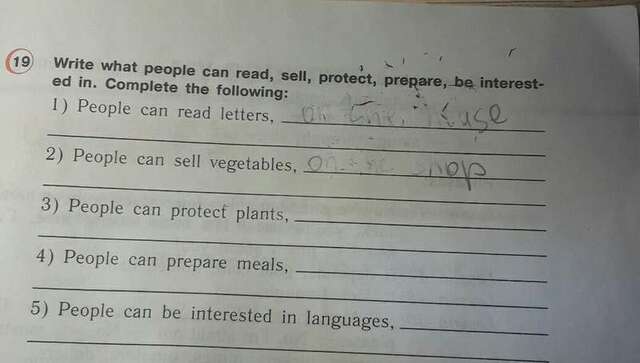 19 Write what people can read, sell, protect, prepare, be interest-
ed in. Complete the following:
1) People can read letters,
2) People can sell vegetables,
3) People can protect plants,
4) People can prepare meals,
5) People can be interested in languages,